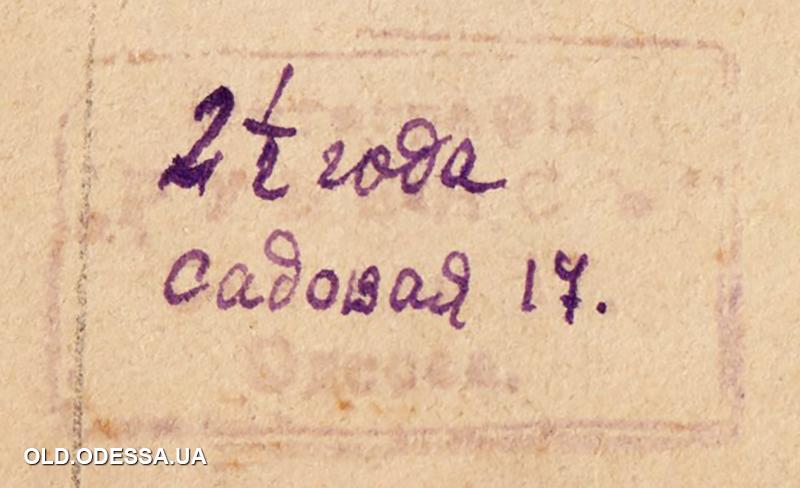 2 1/2 года
Садовая 17.
Одесса.
OLD.ODESSA.UA